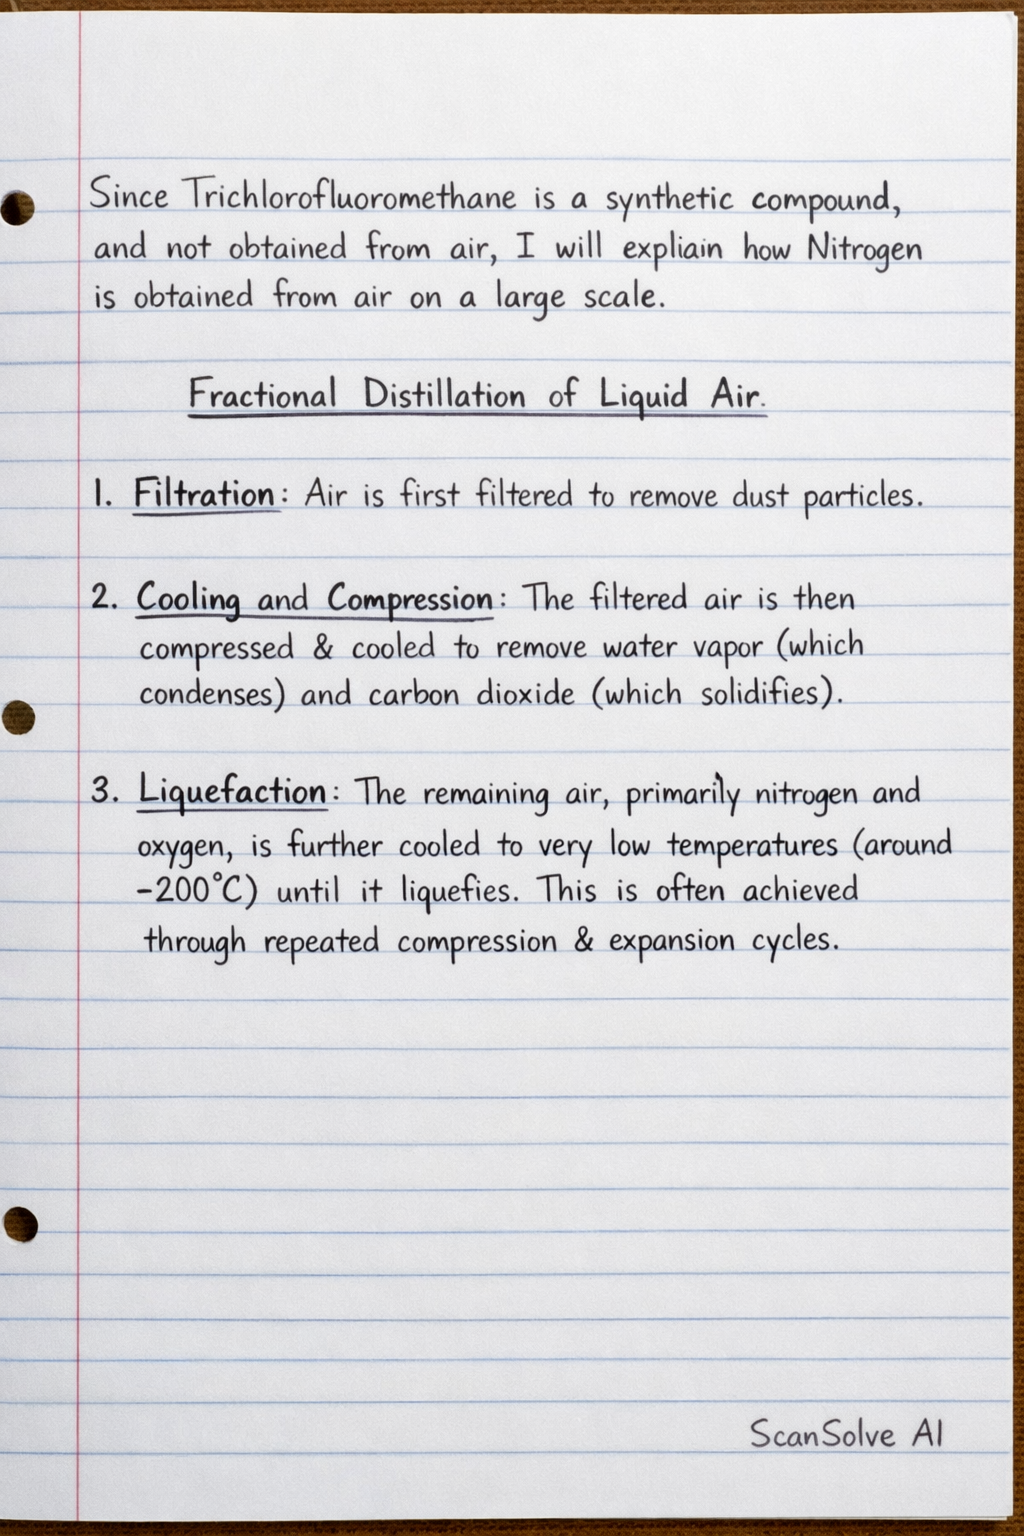 Since Trichlorofluoromethane is a synthetic compound,
and not obtained from air, I will expliain how Nitrogen
is obtained from air on a large scale.
Fractional Distillation of Liquid Air.
1. Filtration: Air is first filtered to remove dust particles.
2. Cooling and Compression: The filtered air is then
compressed & cooled to remove water vapor (which
condenses) and carbon dioxide (which solidifies).
3. Liquefaction: The remaining air, primarily nitrogen and
oxygen, is further cooled to very low temperatures (around
-200°C) until it liquefies. This is often achieved
through repeated compression & expansion cycles.
ScanSolve AI